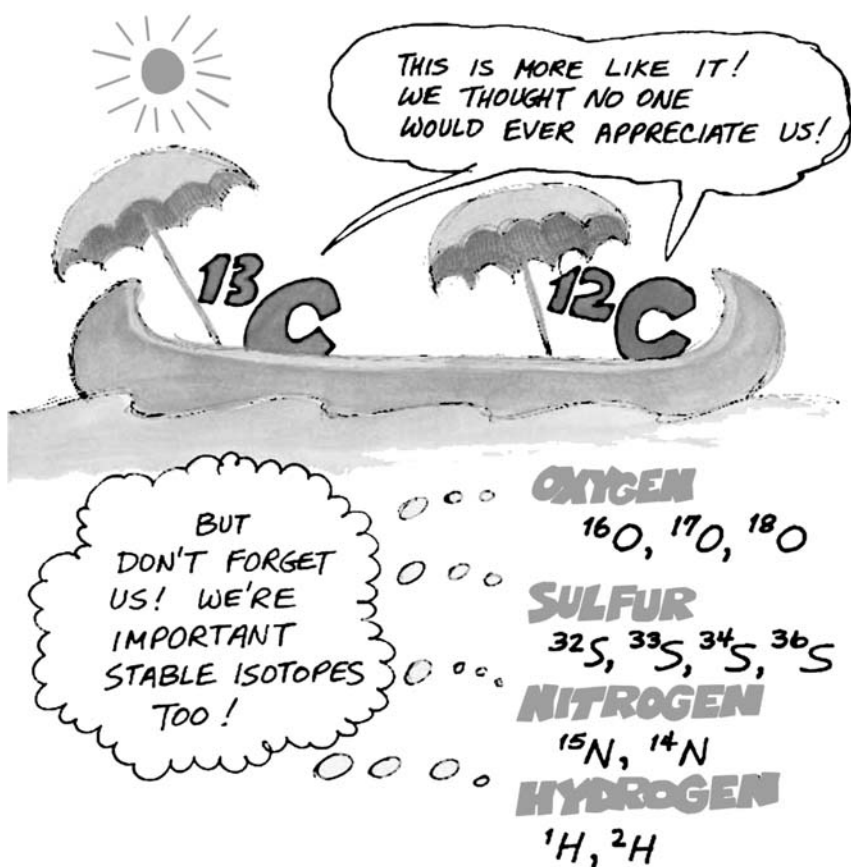 THIS IS MORE LIKE IT!
WE THOUGHT NO ONE
WOULD EVER APPRECIATE US!
¹³C
¹²C
BUT
DON'T FORGET
US! WE'RE
IMPORTANT
STABLE ISOTOPES
TOO!
OXYGEN
¹⁶O, ¹⁷O, ¹⁸O
SULFUR
³²S, ³³S, ³⁴S, ³⁶S
NITROGEN
¹⁵N, ¹⁴N
HYDROGEN
¹H, ²H